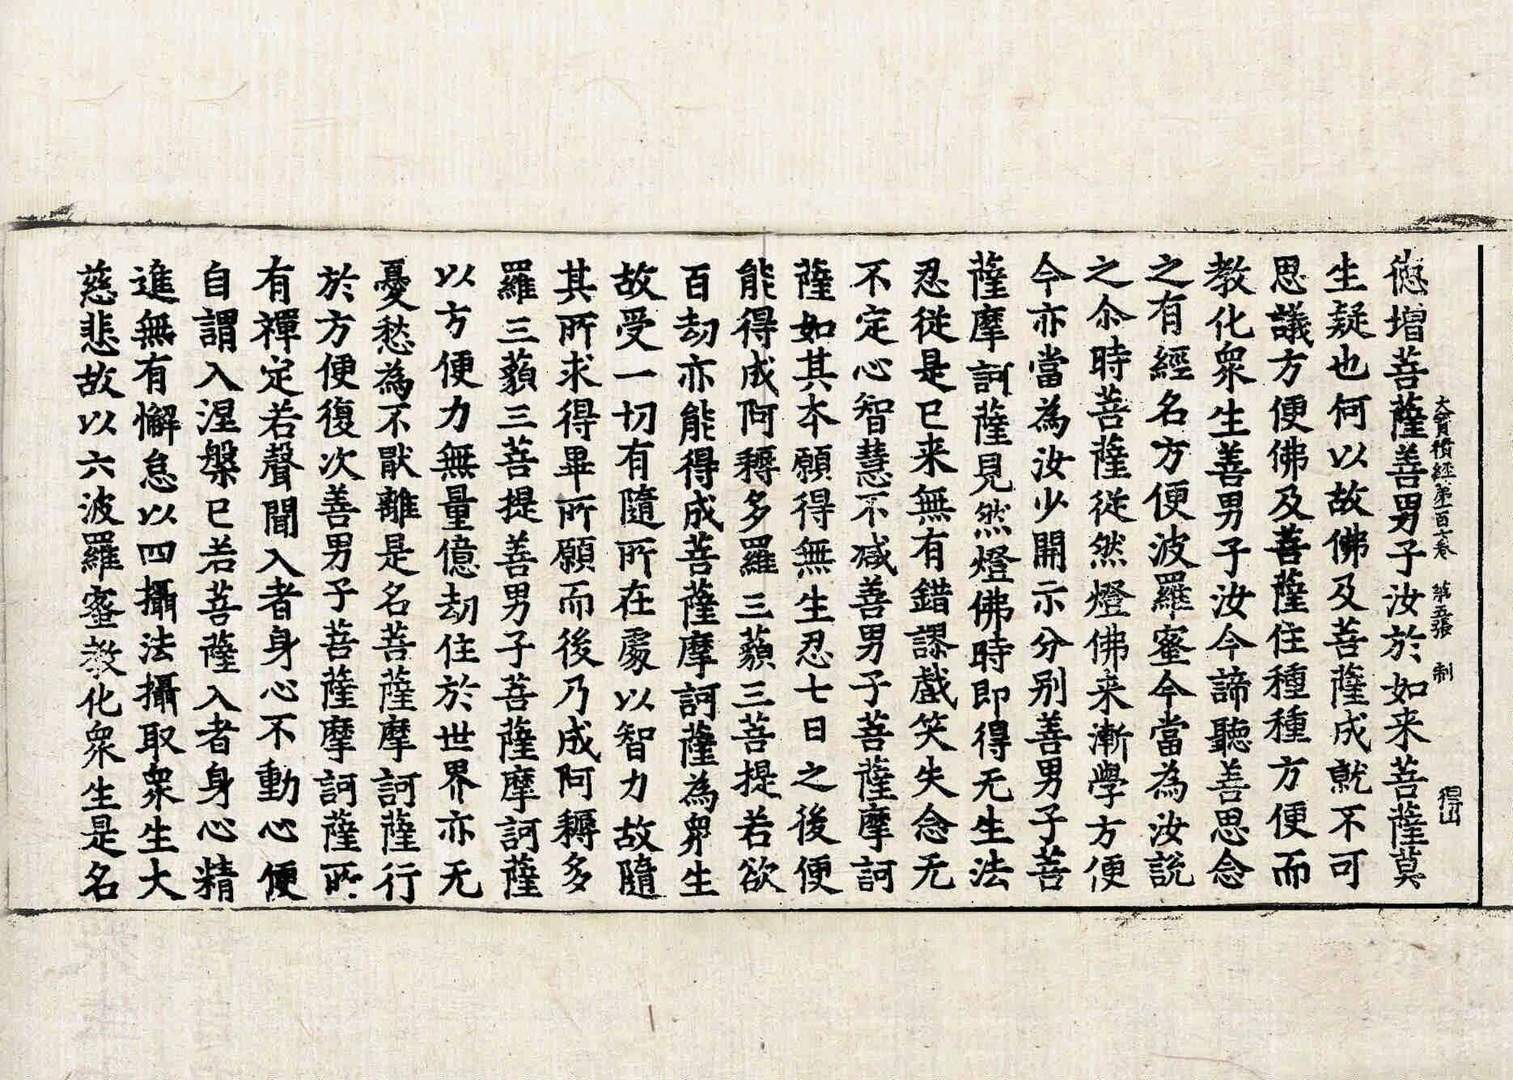 大寳積經第一百七卷 第五張 制
得山
德增菩薩善男子汝於如来菩薩莫
生疑也何以故佛及菩薩成就不可
思議方便佛及善薩住種種方便而
教化衆生善男子汝今諦聽善思念
之有經名方便波羅蜜今當為汝說
之尒時菩薩従然燈佛来漸學方便
今亦當為汝少開示分别善男子菩
薩摩訶薩見然燈佛時即得无生法
忍従是已来無有錯謬戲笑失念无
不定心智慧不减善男子菩薩摩訶
薩如其本願得無生忍七日之後便
能得成阿耨多羅三藐三菩提若欲
百劫亦能得成菩薩摩訶薩為衆生
故受一切有隨所在處以智力故隨
其所求得畢所願而後乃成阿耨多
羅三藐三菩提善男子菩薩摩訶薩
以方便力無量億劫住於世界亦无
憂愁為不猒離是名菩薩摩訶薩行
於方便復次善男子菩薩摩訶薩所
有禪定若聲聞入者身心不動心便
自謂入涅槃已若菩薩入者身心精
進無有懈怠以四攝法攝取衆生大
慈悲故以六波羅蜜教化衆生是名